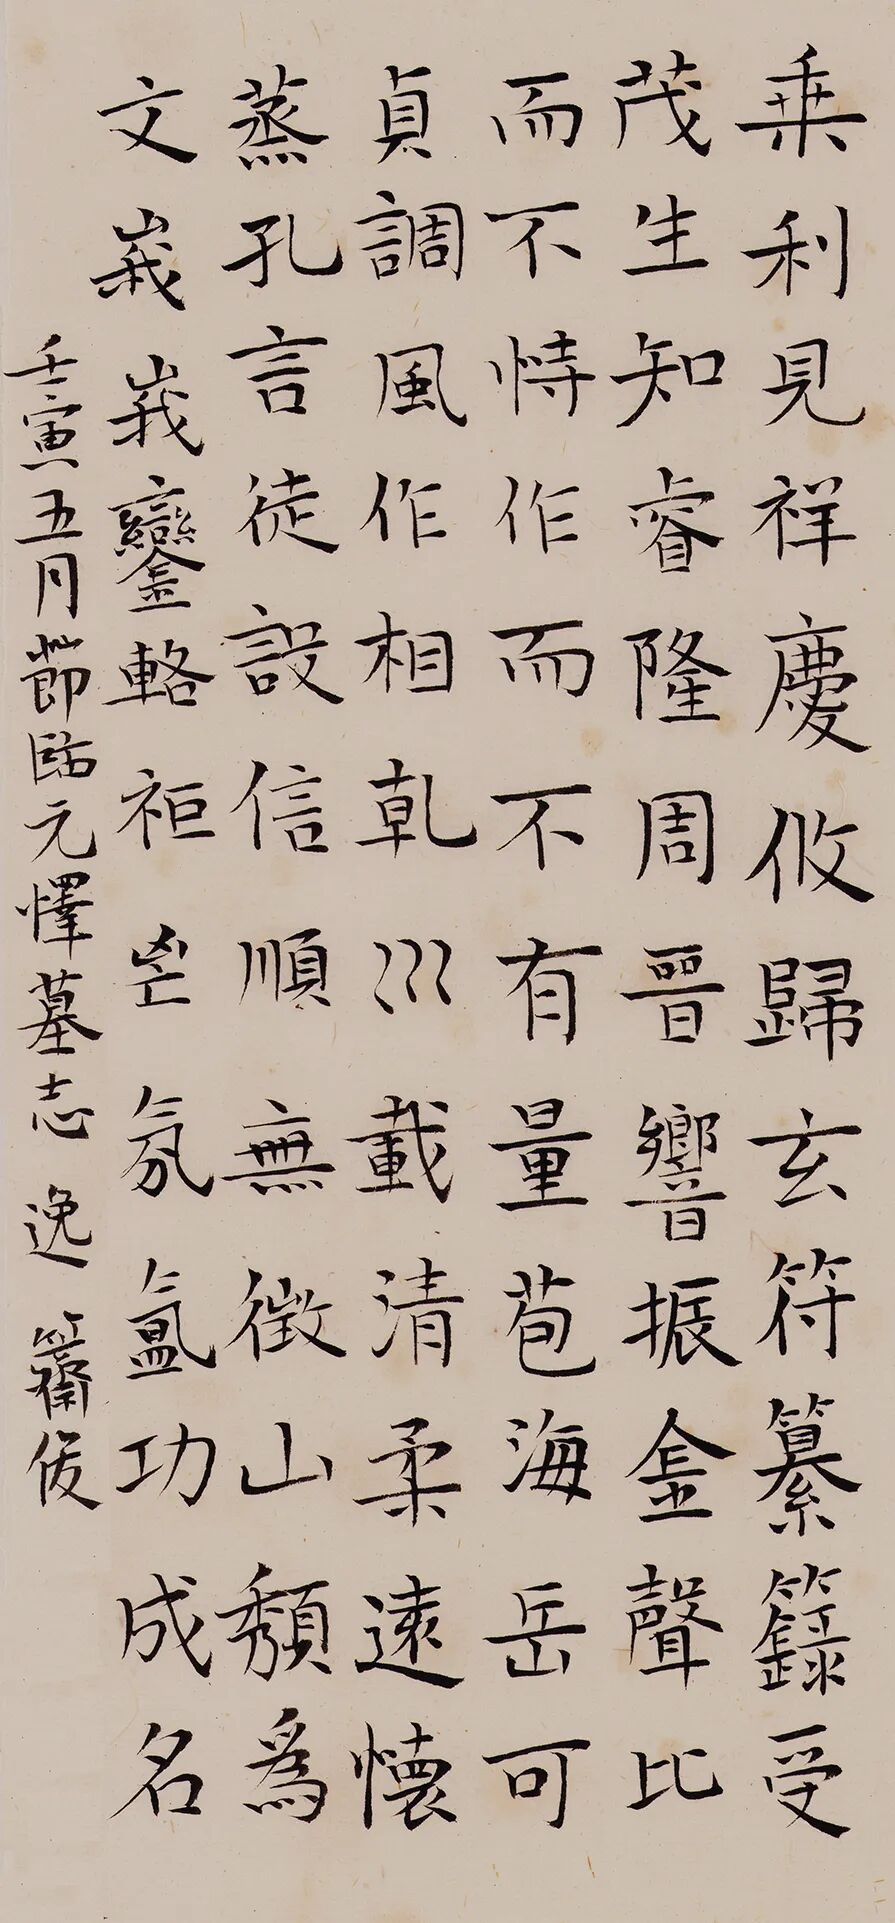 乘利見祥慶攸歸玄符纂籙受
茂生知睿隆周晉響振金聲比
而不恃作而不有量苞海岳可
貞調風作相乾川載清柔遠懷
蒸孔言徒設信順無徵山頹為
文峩峩鑾輅秬鬯氛氳功成名
壬寅五月節臨元懌墓志 逸